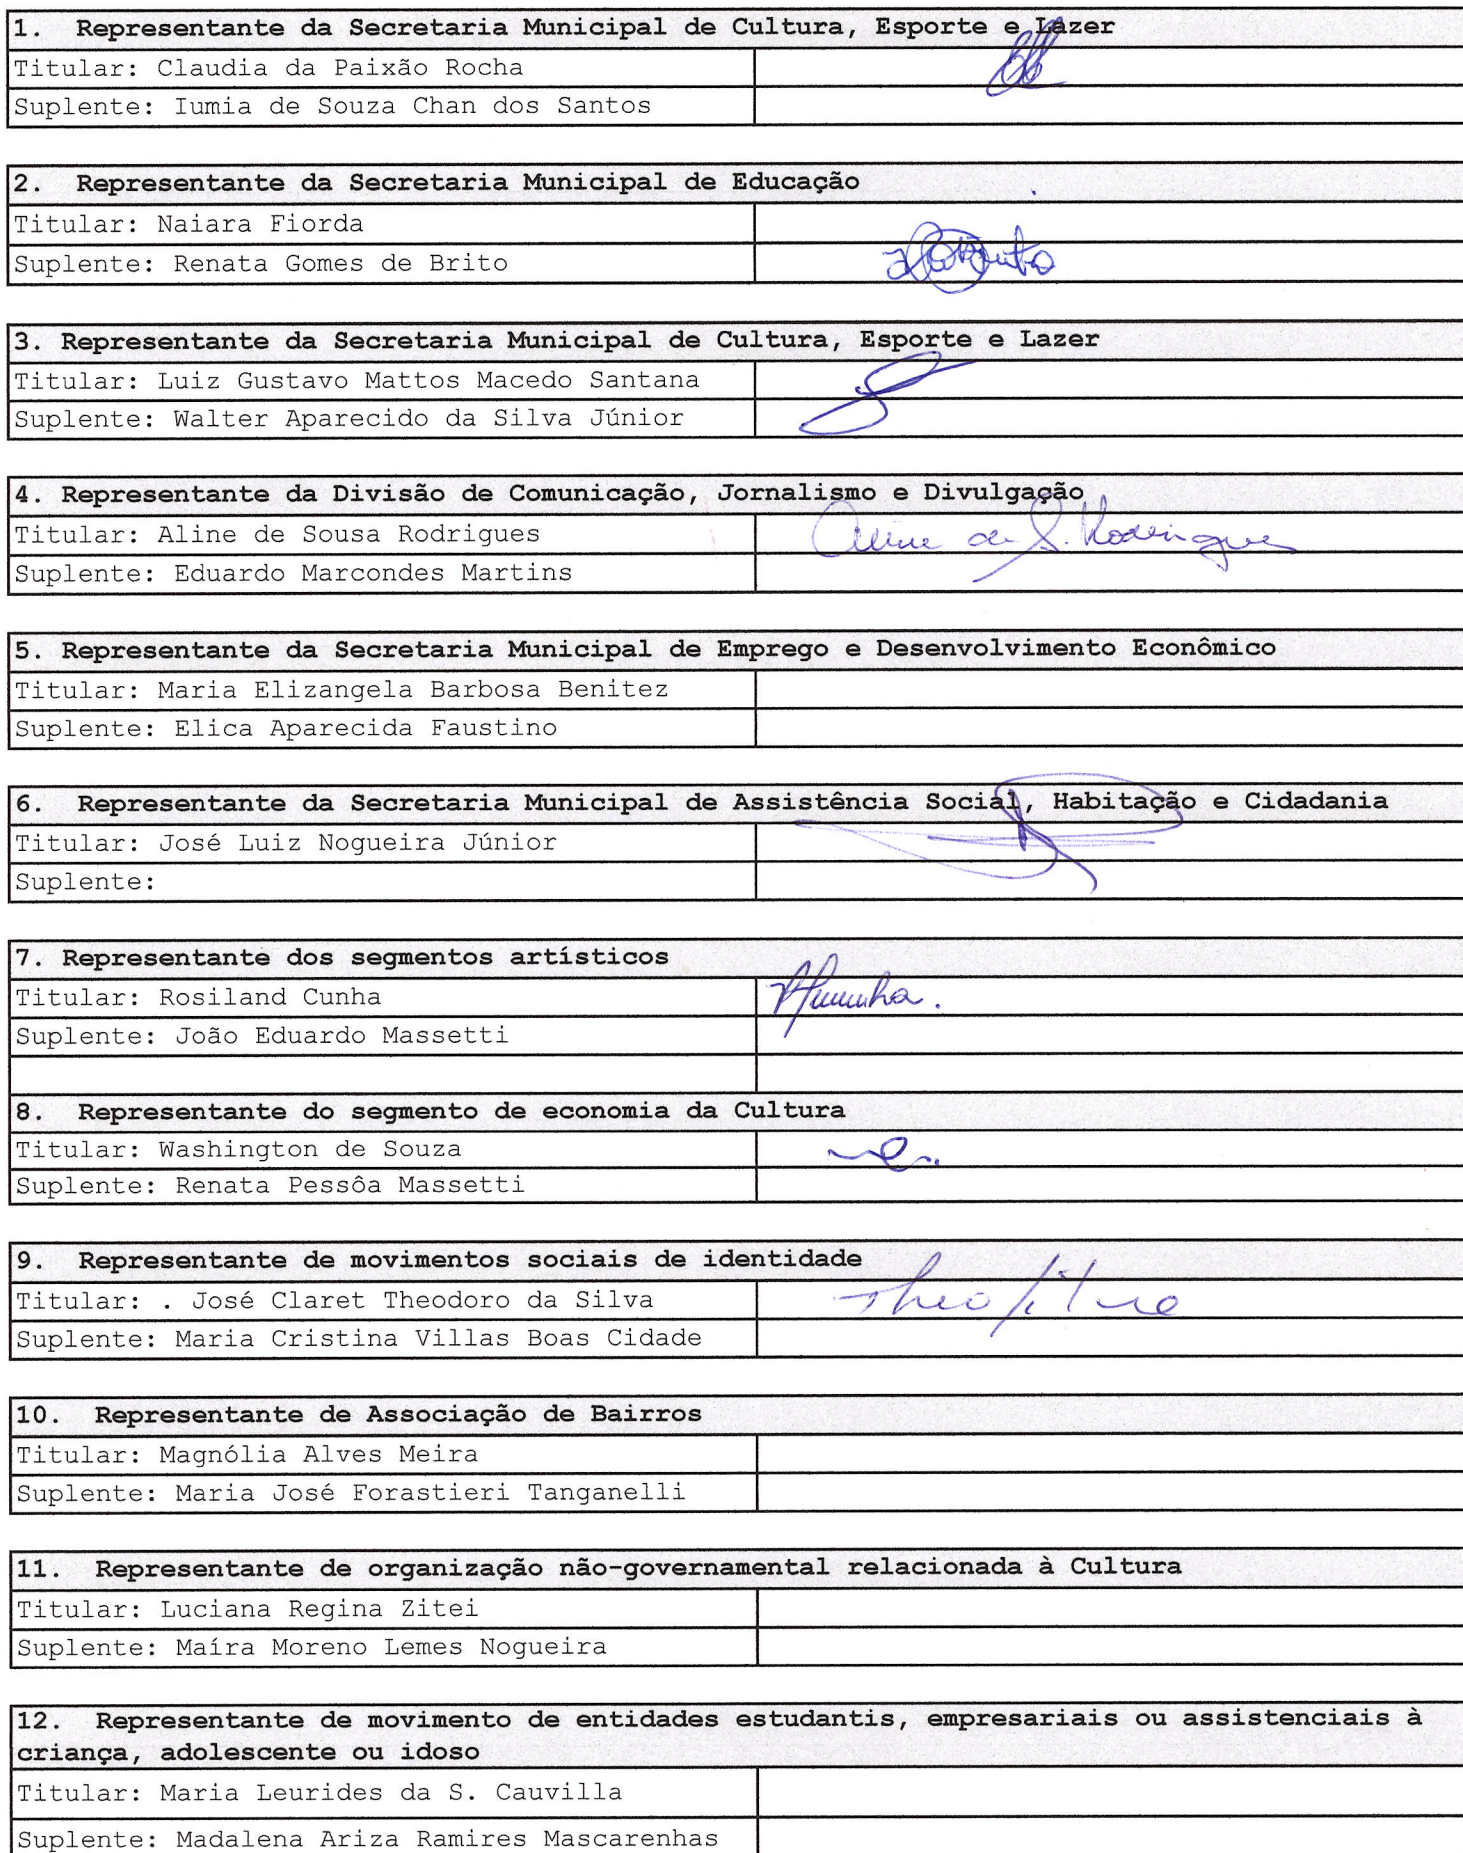 1. Representante da Secretaria Municipal de Cultura, Esporte e Lazer
Titular: Claudia da Paixão Rocha
Suplente: Iumia de Souza Chan dos Santos
2. Representante da Secretaria Municipal de Educação
Titular: Naiara Fiorda
Suplente: Renata Gomes de Brito
3. Representante da Secretaria Municipal de Cultura, Esporte e Lazer
Titular: Luiz Gustavo Mattos Macedo Santana
Suplente: Walter Aparecido da Silva Júnior
4. Representante da Divisão de Comunicação, Jornalismo e Divulgação
Titular: Aline de Sousa Rodrigues Aline de S. Rodrigues
Suplente: Eduardo Marcondes Martins
5. Representante da Secretaria Municipal de Emprego e Desenvolvimento Econômico
Titular: Maria Elizangela Barbosa Benitez
Suplente: Elica Aparecida Faustino
6. Representante da Secretaria Municipal de Assistência Social, Habitação e Cidadania
Titular: José Luiz Nogueira Júnior
Suplente:
7. Representante dos segmentos artísticos
Titular: Rosiland Cunha
Suplente: João Eduardo Massetti
8. Representante do segmento de economia da Cultura
Titular: Washington de Souza
Suplente: Renata Pessôa Massetti
9. Representante de movimentos sociais de identidade
Titular: . José Claret Theodoro da Silva
Suplente: Maria Cristina Villas Boas Cidade
10. Representante de Associação de Bairros
Titular: Magnólia Alves Meira
Suplente: Maria José Forastieri Tanganelli
11. Representante de organização não-governamental relacionada à Cultura
Titular: Luciana Regina Zitei
Suplente: Maíra Moreno Lemes Nogueira
12. Representante de movimento de entidades estudantis, empresariais ou assistenciais à
criança, adolescente ou idoso
Titular: Maria Leurides da S. Cauvilla
Suplente: Madalena Ariza Ramires Mascarenhas